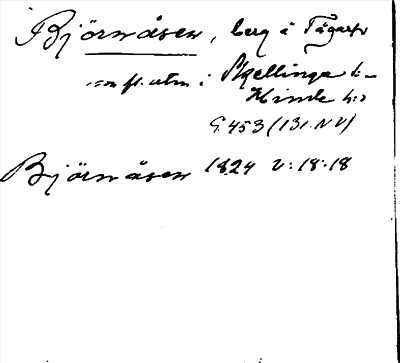 Björnåsen, berg å Tågarp
sn fl. utm i Skellinge t-
Himle h:d
G.453 (131.NV)
Björnåsen 1824 V:18:18